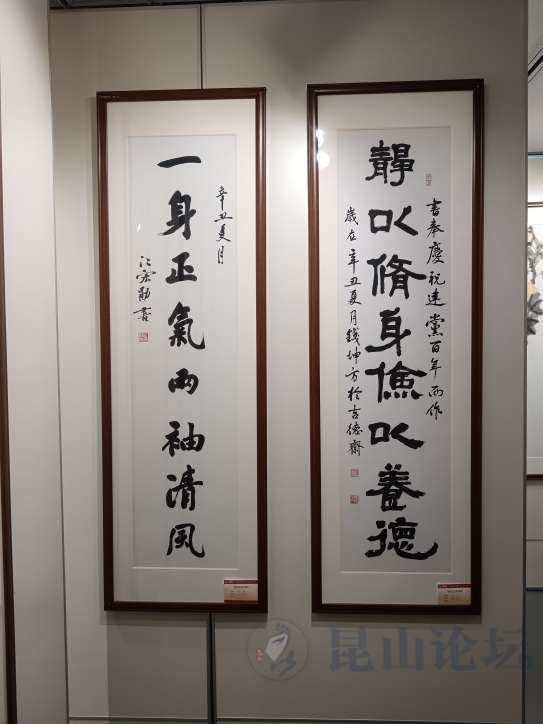 靜以脩身儉以養德
書奉慶祝建黨百年而作
歲在辛丑夏月錢坤方於吉德齋
一身正氣兩袖清風
辛丑夏月
江宏勛書
昆山论坛